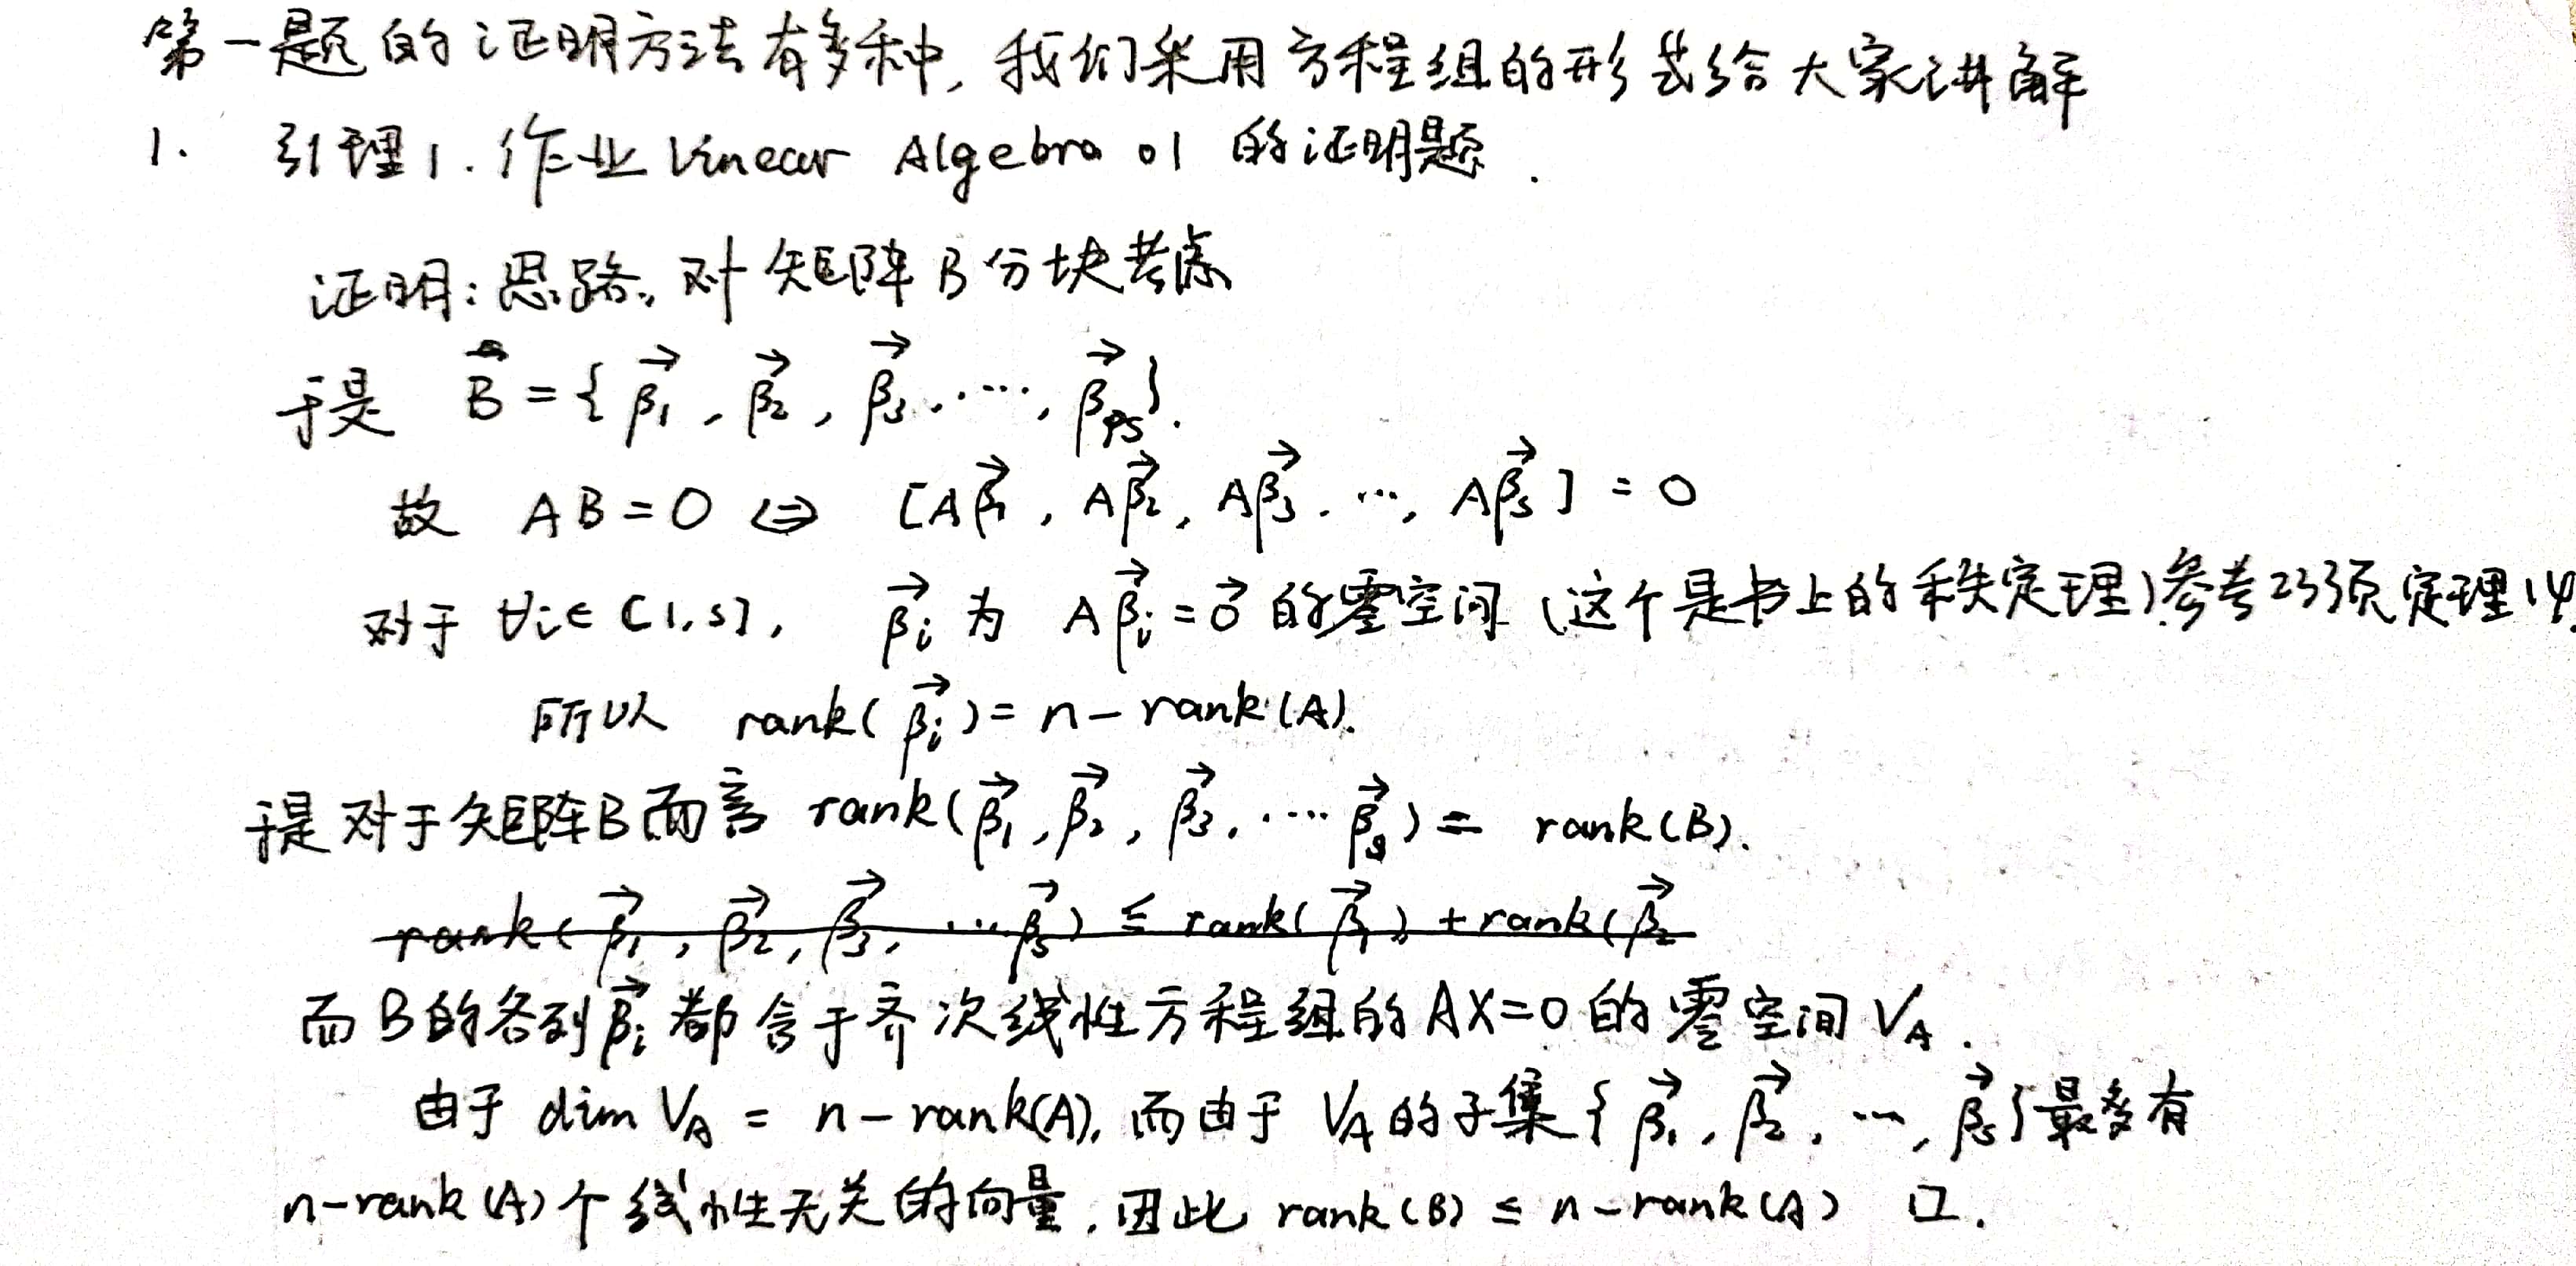 第一题的证明方法有多种, 我们采用方程组的形式给大家讲解
1. 引理1. 作业 Linear Algebra 01 的证明题.
证明: 思路, 对矩阵B分块考虑
于是 B = { β₁⃗, β₂⃗, β₃⃗, ..., βₛ⃗ }.
故 AB = 0 ⇔ [Aβ₁⃗, Aβ₂⃗, Aβ₃⃗, ..., Aβₛ⃗] = 0
对于 ∀i∈[1,s], βᵢ⃗ 为 Aβᵢ⃗ = 0⃗ 的零空间 (这个是书上的秩定理) 参考233页定理14.
所以 rank(βᵢ⃗) = n - rank(A).
于是对于矩阵B而言 rank(β₁⃗, β₂⃗, β₃⃗, ... βₛ⃗) = rank(B).
rank(β₁⃗, β₂⃗, β₃⃗, ... βₛ⃗) ≤ rank(β₁⃗) + rank(β₂⃗
而B的各列βᵢ⃗都含于齐次线性方程组的AX=0的零空间 V_A.
由于 dim V_A = n - rank(A), 而由于 V_A 的子集 { β₁⃗, β₂⃗, ..., βₛ⃗ } 最多有
n-rank(A)个线性无关的向量, 因此 rank(B) ≤ n - rank(A) □.